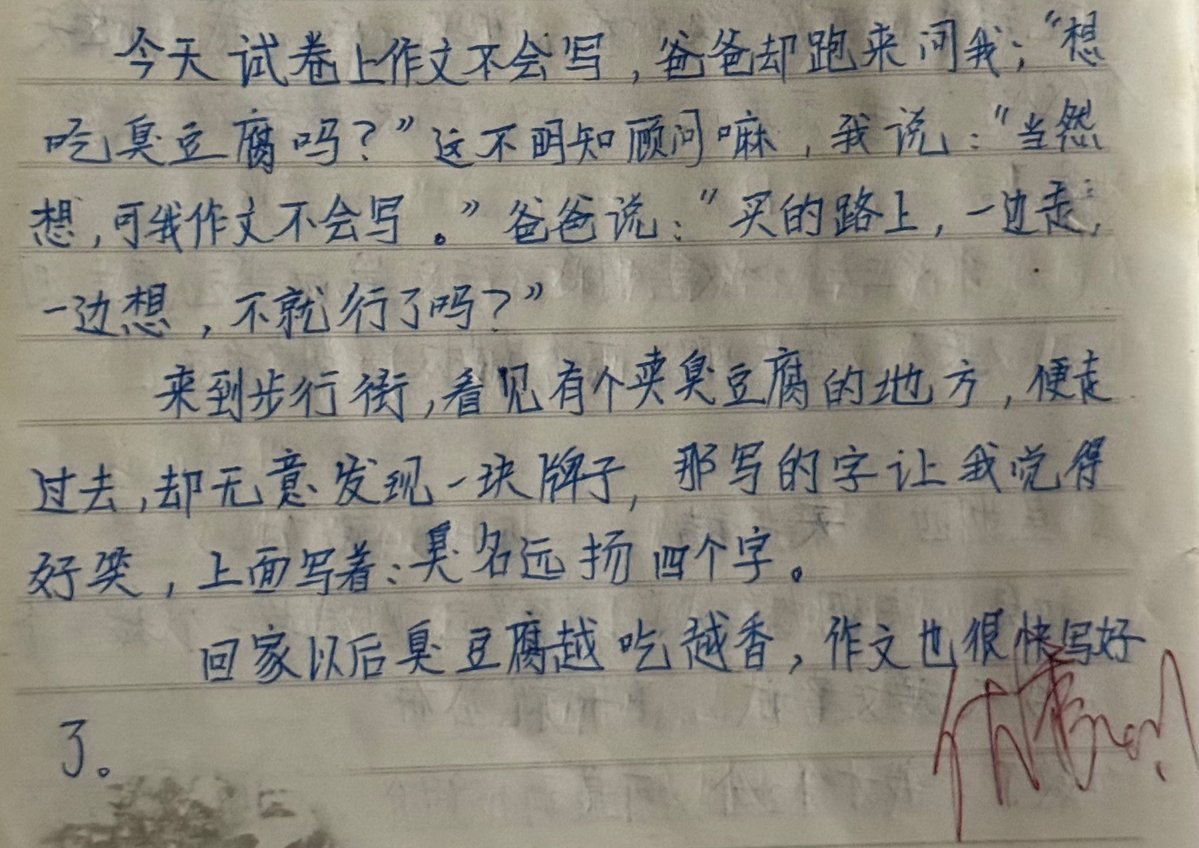 今天试卷上作文不会写，爸爸却跑来问我；“想
吃臭豆腐吗？”这不明知顾问嘛，我说：“当然
想，可我作文不会写。”爸爸说：“买的路上，一边走，
一边想，不就行了吗？”
来到步行街，看见有个卖臭豆腐的地方，便走
过去，却无意发现一块牌子，那写的字让我觉得
好笑，上面写着：臭名远扬四个字。
回家以后臭豆腐越吃越香，作文也很快写好
了。